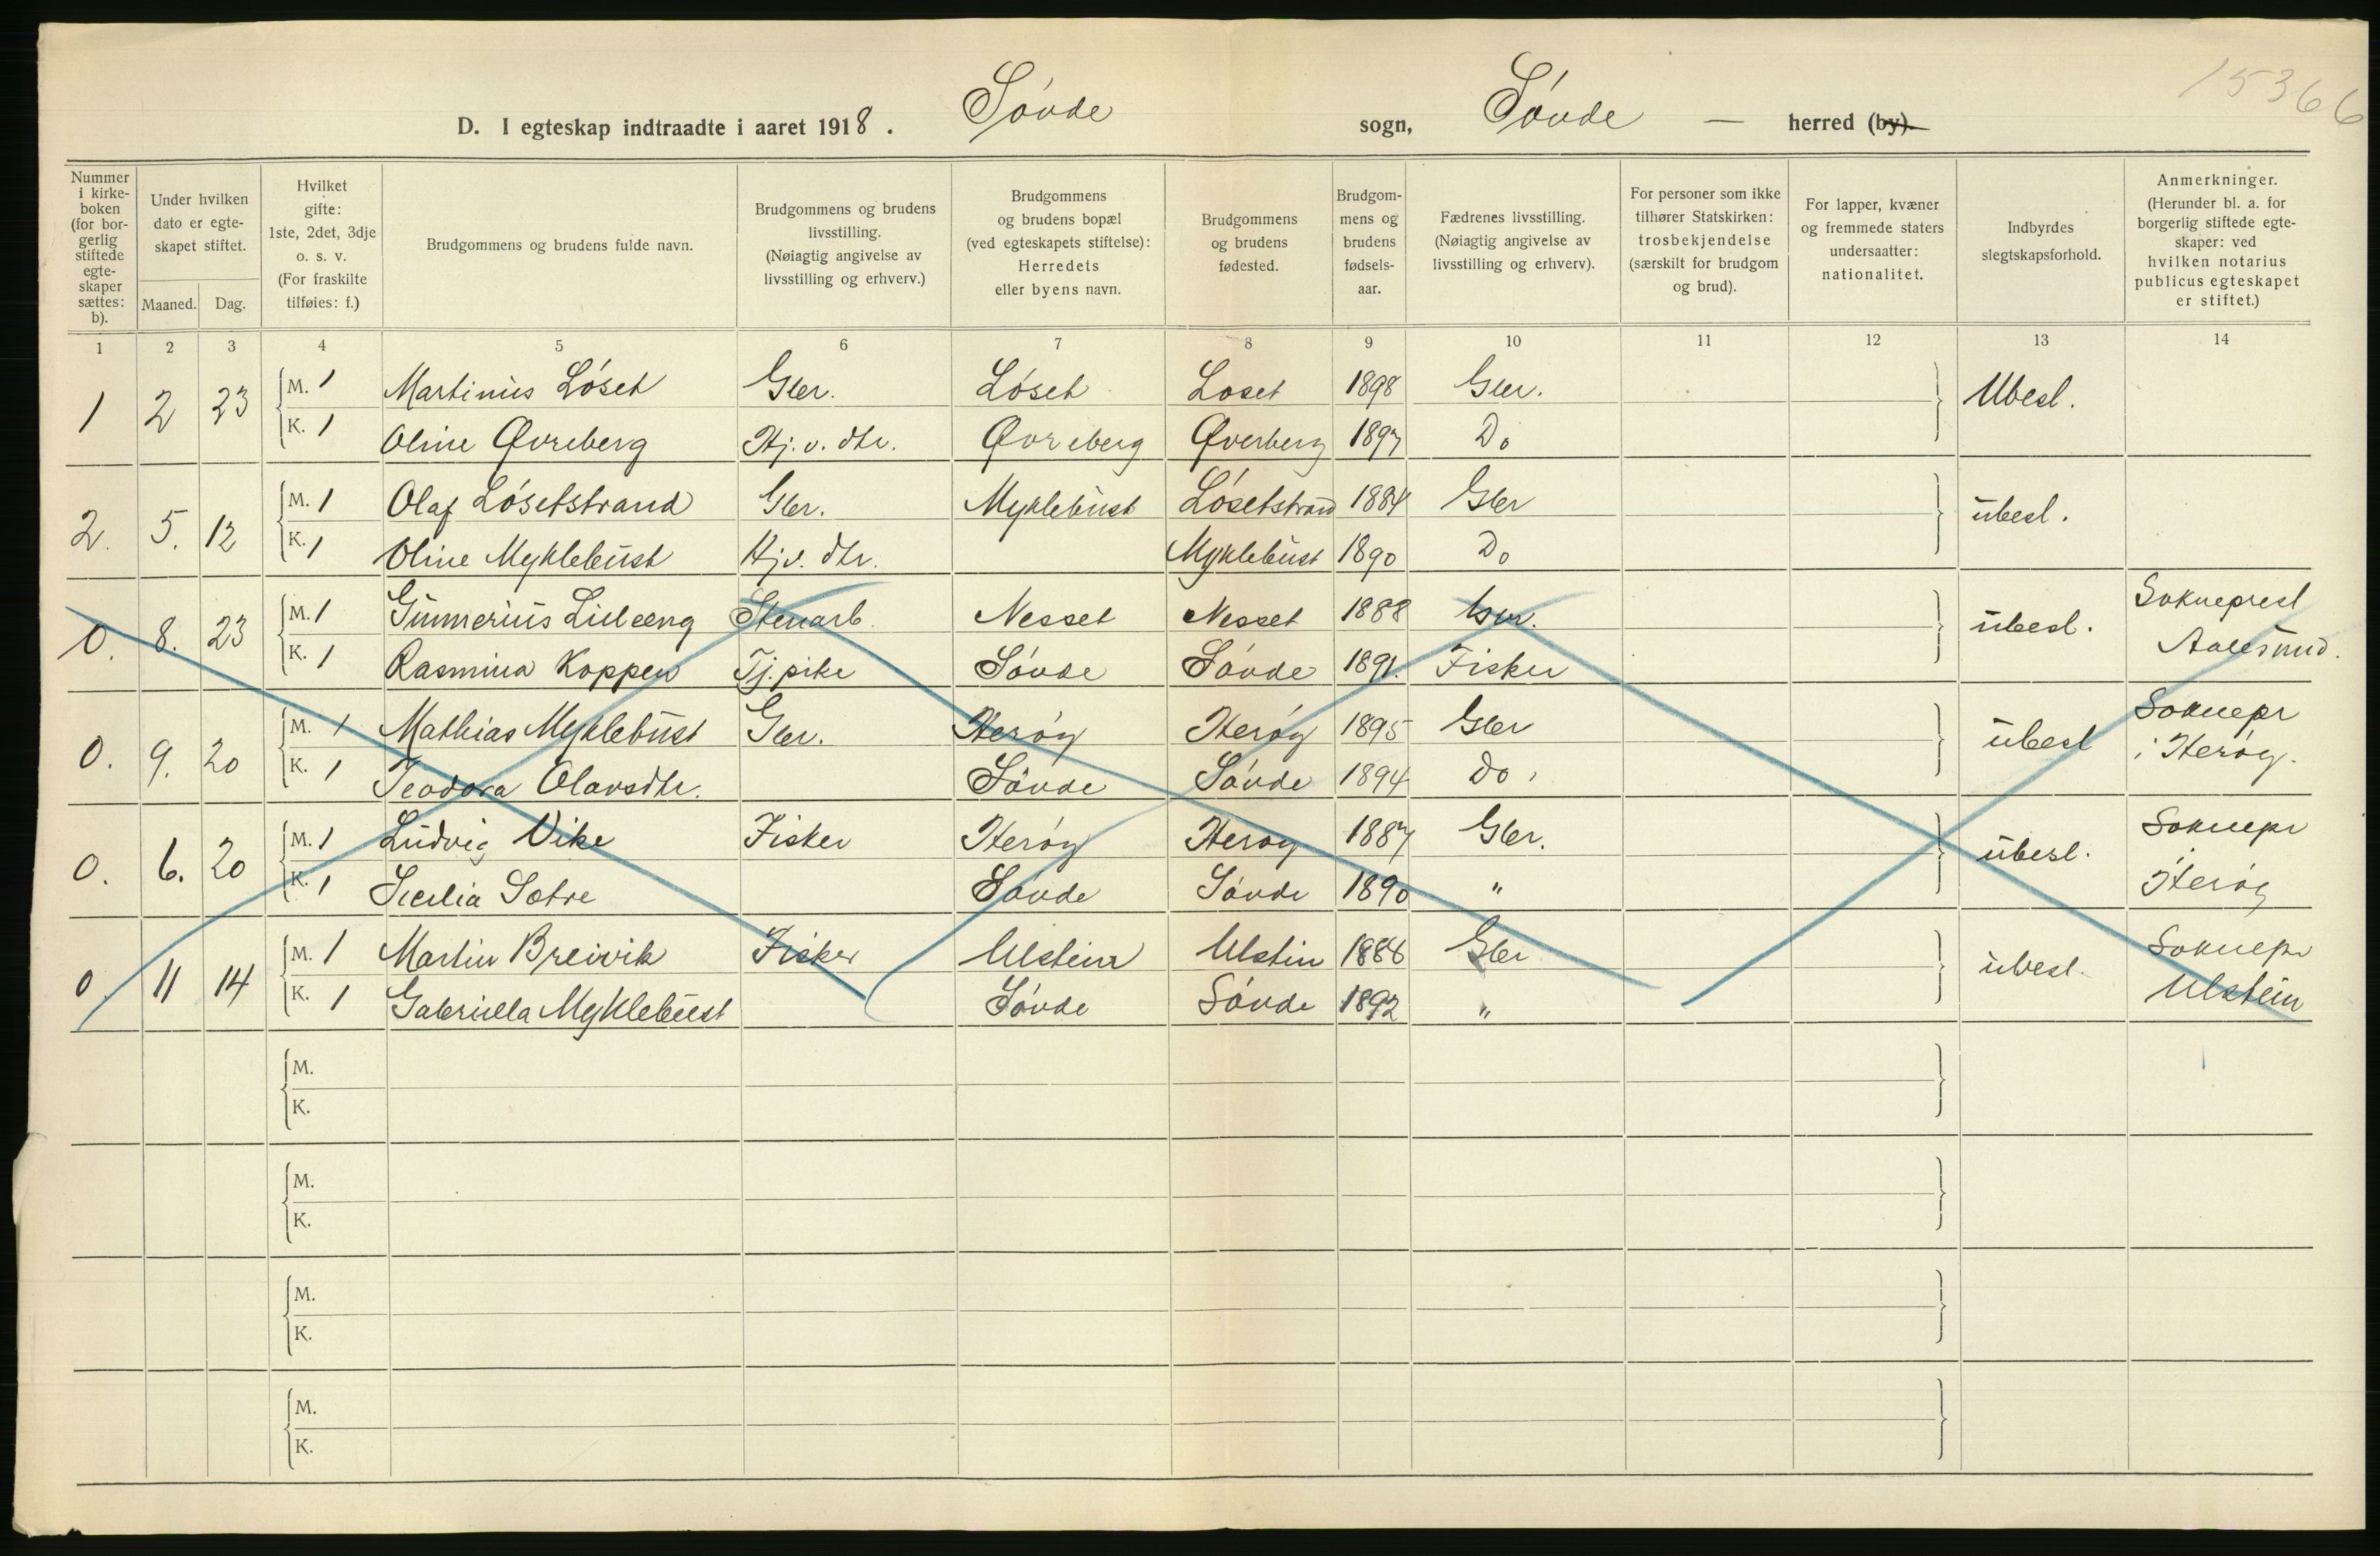 15366
D. I egteskap indtraadte i aaret 1918. Søvde sogn, Søvde — herred (by).
Nummer i kirkeboken (for borgerlig stiftede egteskaper sættes: b).
Under hvilken dato er egteskapet stiftet.
Maaned. Dag.
Hvilket gifte: 1ste, 2det, 3dje o. s. v. (For fraskilte tilføies: f.)
Brudgommens og brudens fulde navn.
Brudgommens og brudens livsstilling. (Nøiagtig angivelse av livsstilling og erhverv.)
Brudgommens og brudens bopæl (ved egteskapets stiftelse): Herredets eller byens navn.
Brudgommens og brudens fødested.
Brudgommens og brudens fødselsaar.
Fædrenes livsstilling. (Nøiagtig angivelse av livsstilling og erhverv).
For personer som ikke tilhører Statskirken: trosbekjendelse (særskilt for brudgom og brud).
For lapper, kvæner og fremmede staters undersaatter: nationalitet.
Indbyrdes slegtskapsforhold.
Anmerkninger. (Herunder bl. a. for borgerlig stiftede egteskaper: ved hvilken notarius publicus egteskapet er stiftet.)
1 2 3 4 5 6 7 8 9 10 11 12 13 14
1 2 23 M. 1 Martinus Løset Gbr. Løset Løset 1898 Gbr. Ubesl.
K. 1 Oline Øvreberg Hj. v. dtr. Øvreberg Øverberg 1897 Do
2. 5. 12 M. 1 Olaf Løsetstrand Gbr. Myklebust Løsetstrand 1884 Gbr ubesl.
K. 1 Oline Myklebust Hj v. dtr. Myklebust 1890 Do
0. 8. 23 M. 1 Gunnerius Lileeng Stenarb. Nesset Nesset 1888 Gbr. ubesl. Sokneprest
K. 1 Rasmina Koppen Tj. pike Søvde Søvde 1891. Fisker Aalesund.
0. 9. 20 M. 1 Mathias Myklebust Gbr. Herøy Herøy 1895 Gbr ubesl Soknepr
K. 1 Teodora Olavsdtr. Søvde Søvde 1894 Do. i Herøy.
0. 6. 20 M. 1 Ludvig Vike Fisker Herøy Herøy 1887 Gbr. ubesl. Soknepr
K. 1 Secilia Sætre Søvde Søvde 1890 " Herøy
0 11 14 M. 1 Martin Breivik Fisker Ulstein Ulstin 1886 Gbr ubesl. Soknepr
K. 1 Gabriella Myklebust Søvde Søvde 1892 " Ulstein
M.
K.
M.
K.
M.
K.
M.
K.